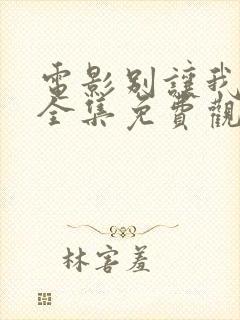 電影別讓我
全集免費觀
林害羞